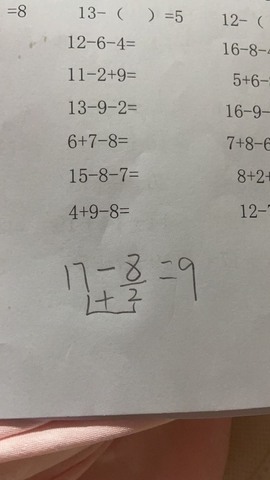 =8 13-( )=5 12-(
12-6-4= 16-8-4
11-2+9= 5+6-
13-9-2= 16-9-
6+7-8= 7+8-6
15-8-7= 8+2+
4+9-8= 12-
17-8=9
1+2